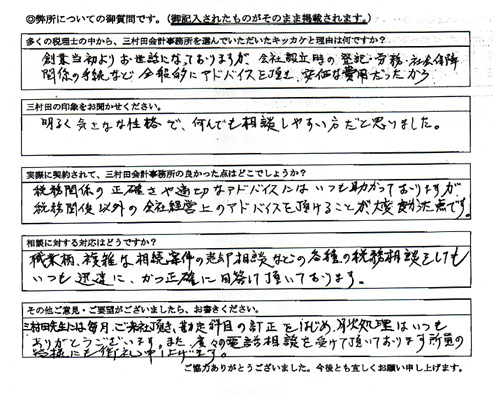 ◎弊所についての御質問です。（御記入されたものがそのまま掲載されます。）
多くの税理士の中から、三村田会計事務所を選んでいただいたキッカケと理由は何ですか？
創業当初よりお世話になっておりますが、会社設立時の登記・労務・社会保障
関係の手続など全般的にアドバイスを頂き、安価な費用だったから
三村田の印象をお聞かせください。
明るく気さくな性格で、何んでも相談しやすい方だと思いました。
実際に契約されて、三村田会計事務所の良かった点はどこでしょうか？
税務関係の正確さや適切なアドバイスにはいつも助かっておりますが、
税務関係以外の会社経営上のアドバイスを頂けることが大変助った点です。
相談に対する対応はどうですか？
職業柄、複雑な相続案件の売却相談などの各種の税務相談をしても
いつも迅速に、かつ正確に回答け頂いております。
その他ご意見・ご要望がございましたら、お書きください。
三村田先生には毎月、ご来社頂き、勘定科目の訂正をはじめ、月次処理はいつも
ありがとうございます。また、度々の電話相談を受けて頂いております所員の
皆様にも御礼申し上げます。
ご協力ありがとうございました。今後とも宜しくお願い申し上げます。